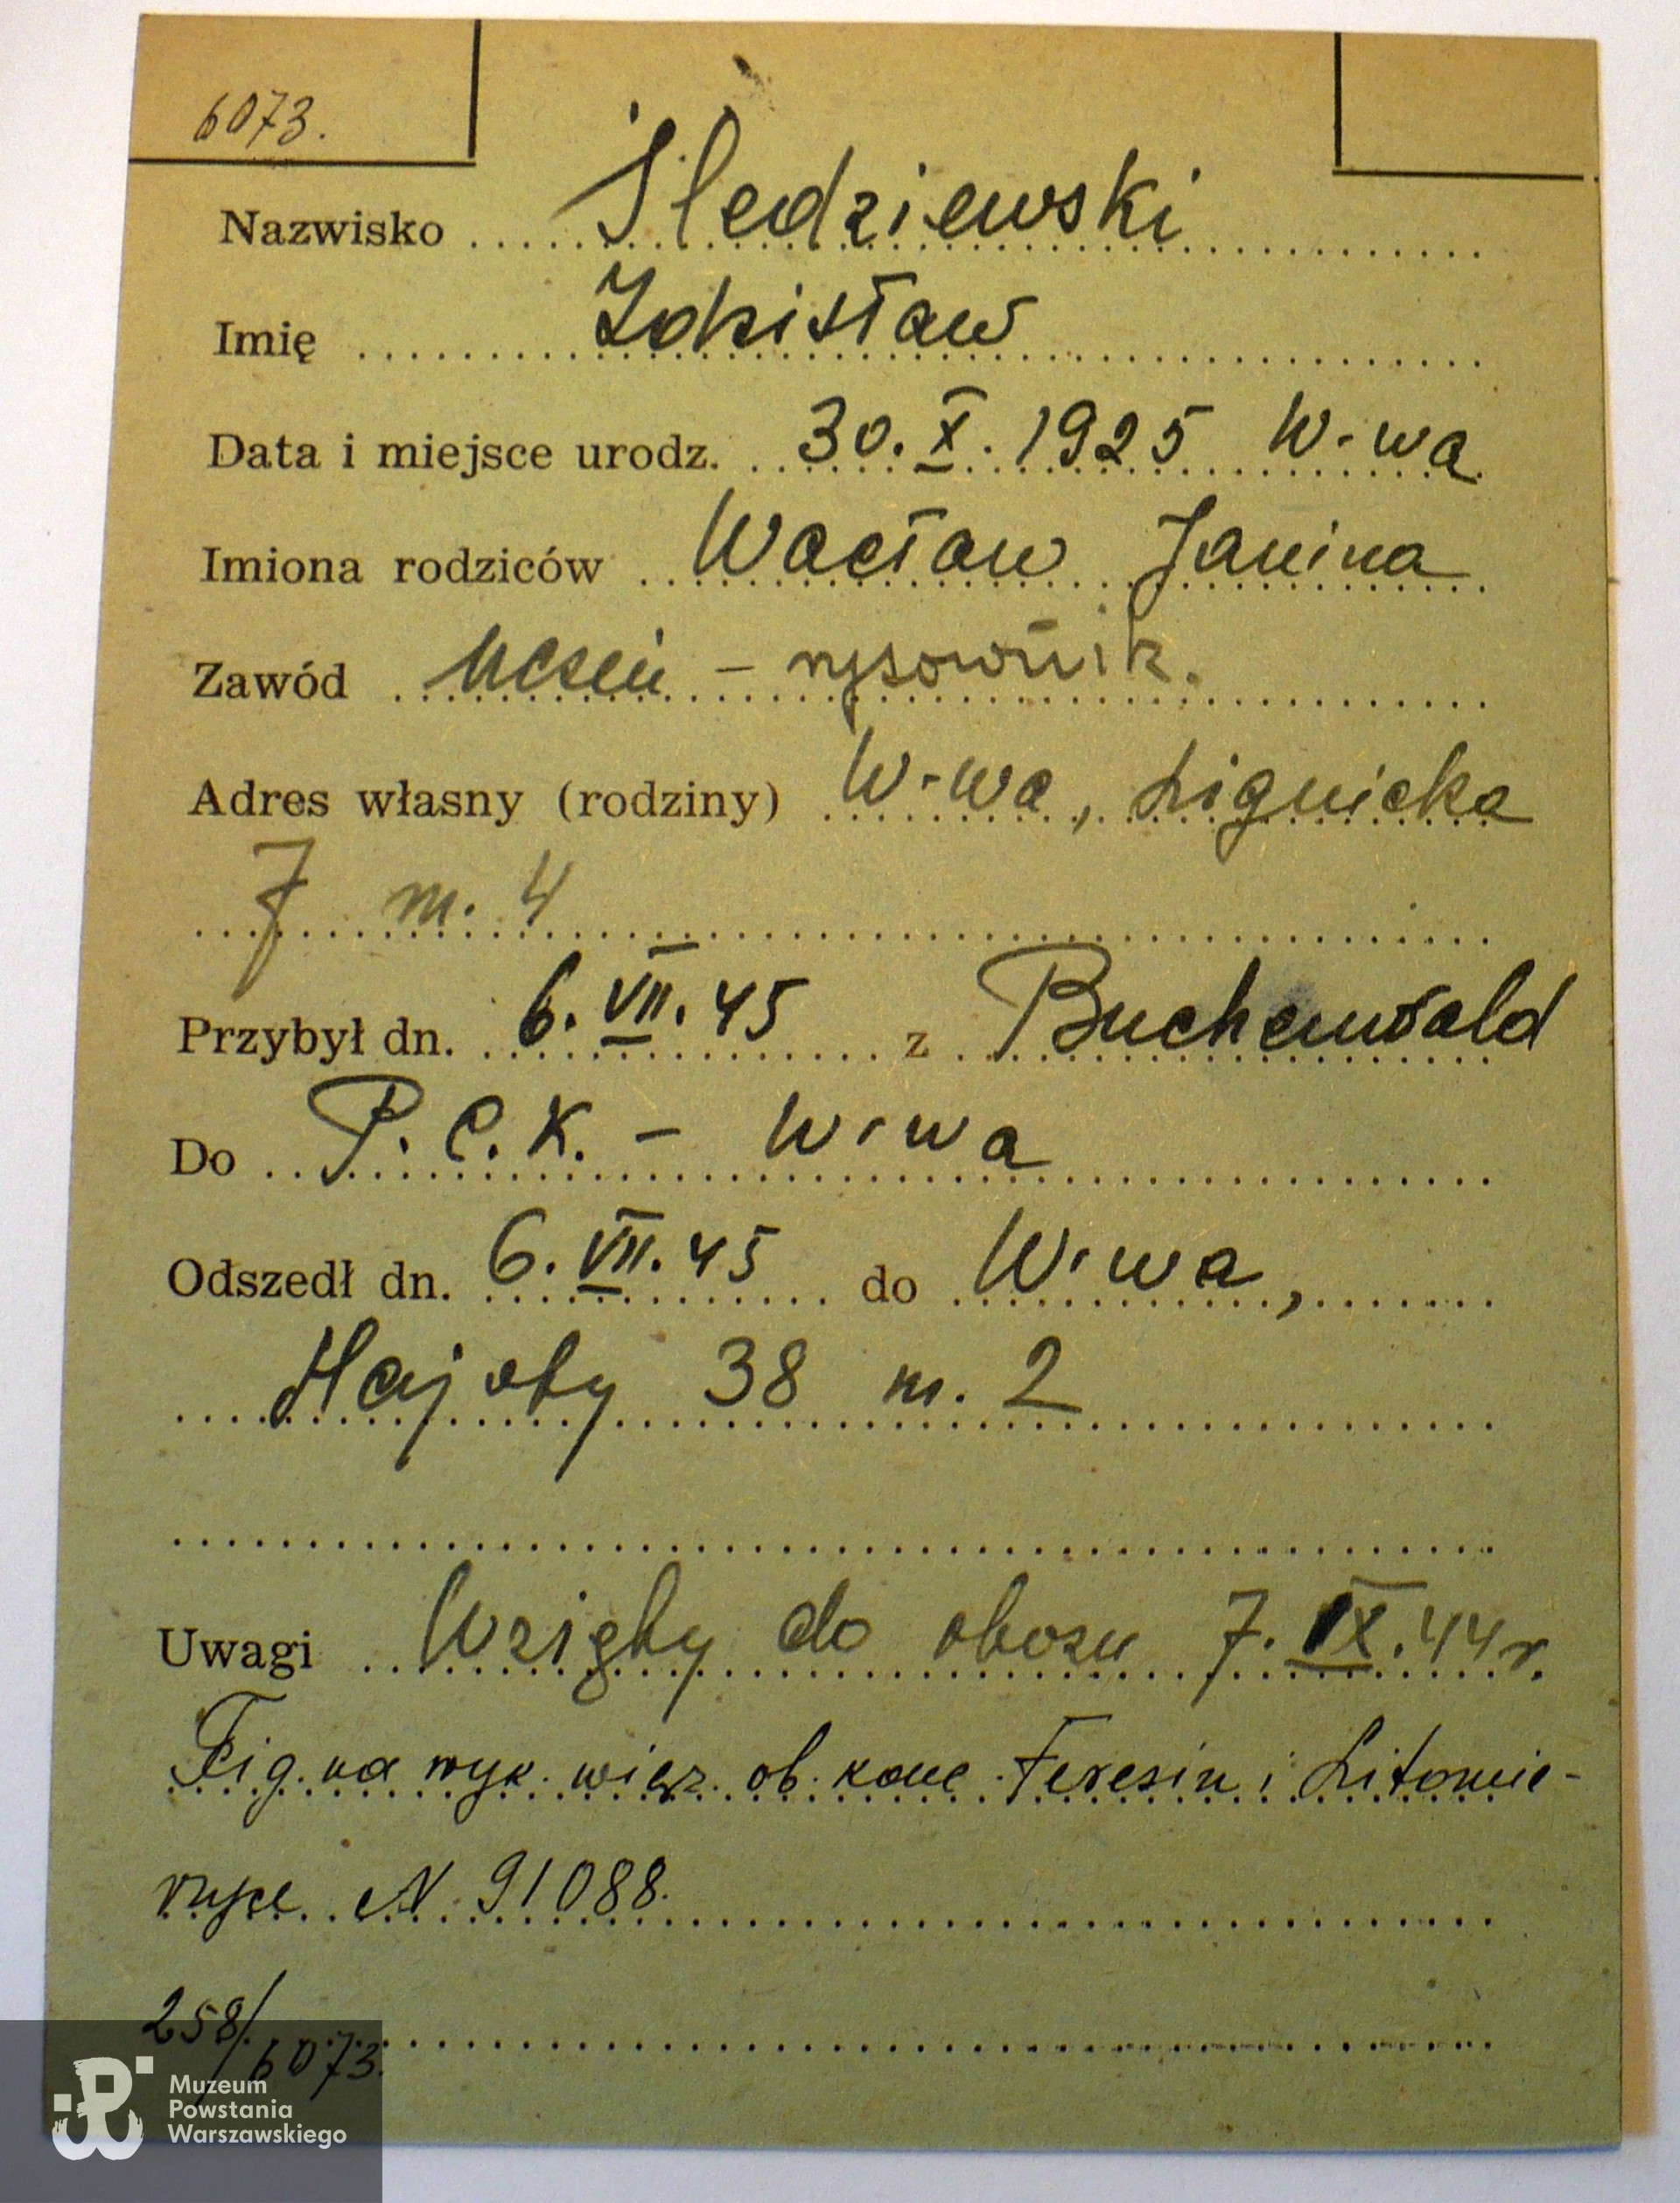 6073.
Nazwisko Śledziewski
Imię Zdzisław
Data i miejsce urodz. 30.X.1925 W-wa
Imiona rodziców Wacław Janina
Zawód uczeń - rysownik.
Adres własny (rodziny) W-wa, Lignicka
7 m. 4
Przybył dn. 6.VII.45 z Buchenwald
Do P.C.K. - W-wa
Odszedł dn. 6.VII.45 do W-wa,
Hajoty 38 m. 2
Uwagi Wzięty do obozu 7.IX.44 r.
Fig. na wyk. więź. ob. konc. Teresin i Litomie-
rzyce N 91088.
258/6073.
Muzeum
Powstania
Warszawskiego